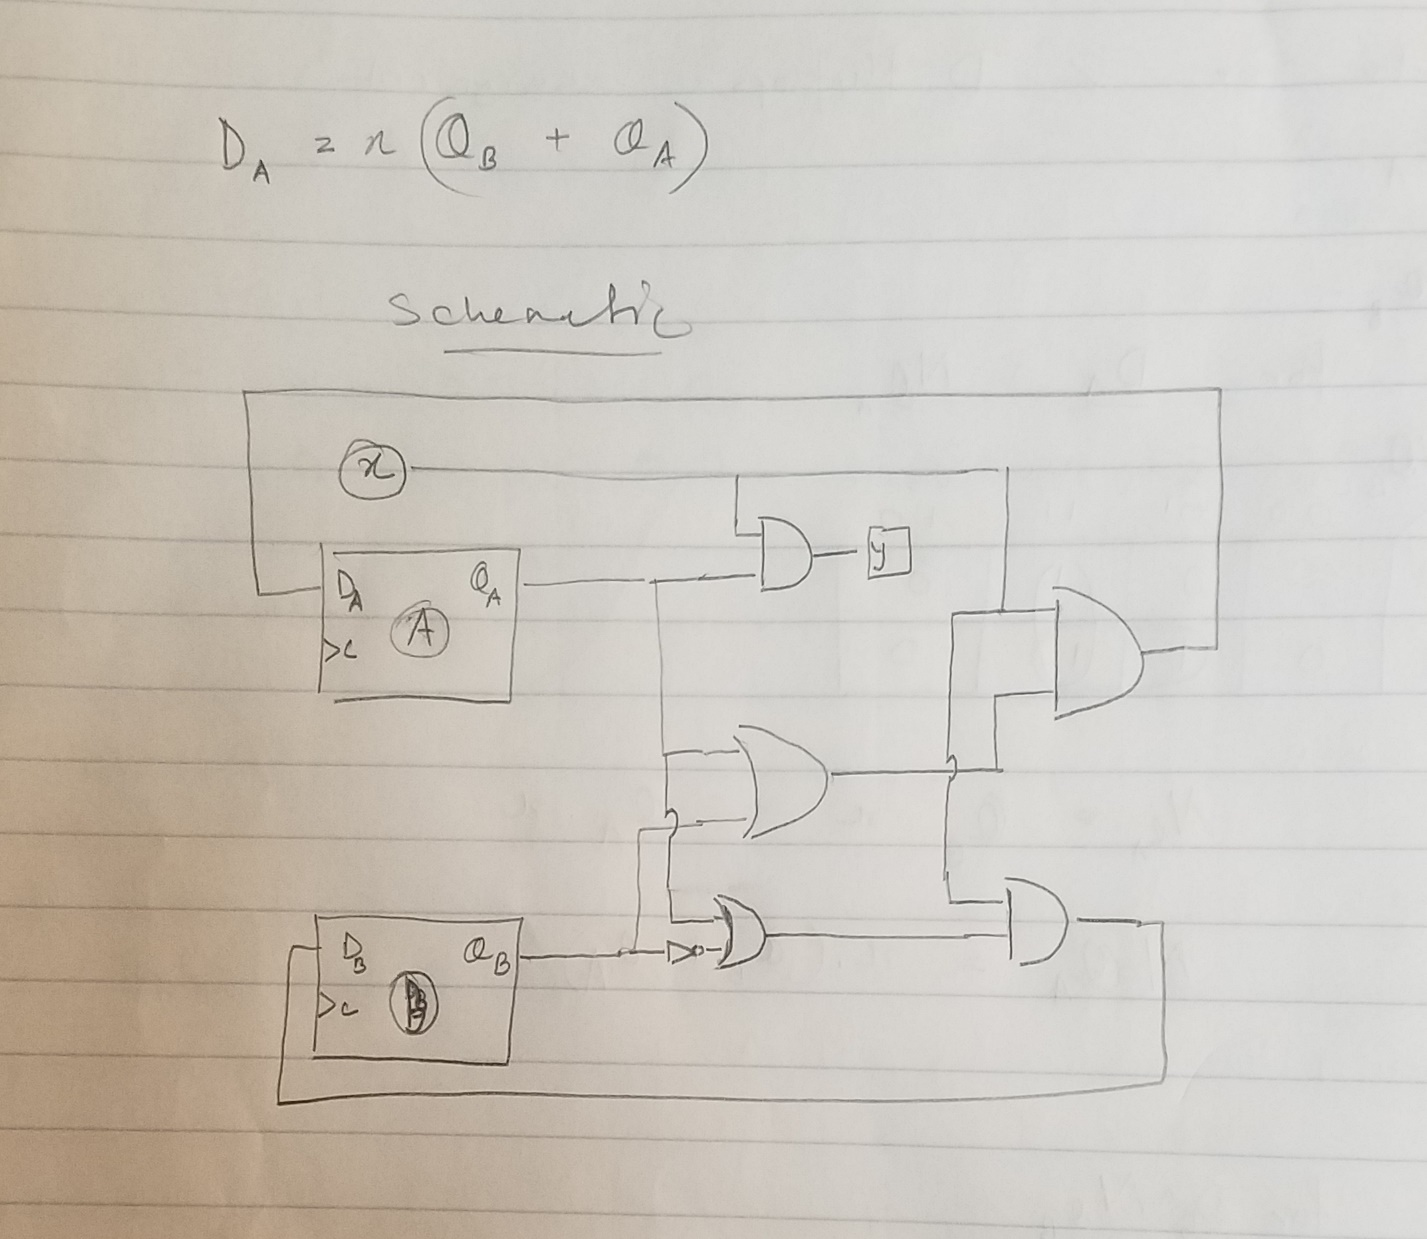 D_A = x (Q_B + Q_A)
Schematic
x
y
D_A Q_A
A
>C
D_B Q_B
>C B